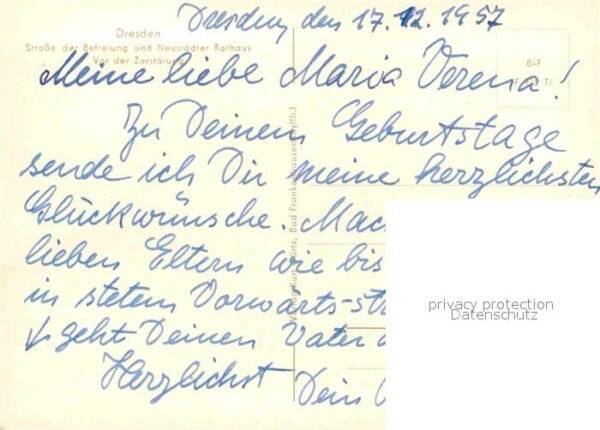 Dresden, den 17.12.1957
Dresden
Straße der Befreiung und Neustädter Rathaus
Vor der Zerstörung
847
Meine liebe Maria Verena!
Zu Deinem Geburtstage
sende ich Dir meine herzlichsten
Glückwünsche. Mac
lieben Eltern wie bis
in stetem Vorwärts-st
geht Deinen Vater
Herzlichst Dein
privacy protection
Datenschutz